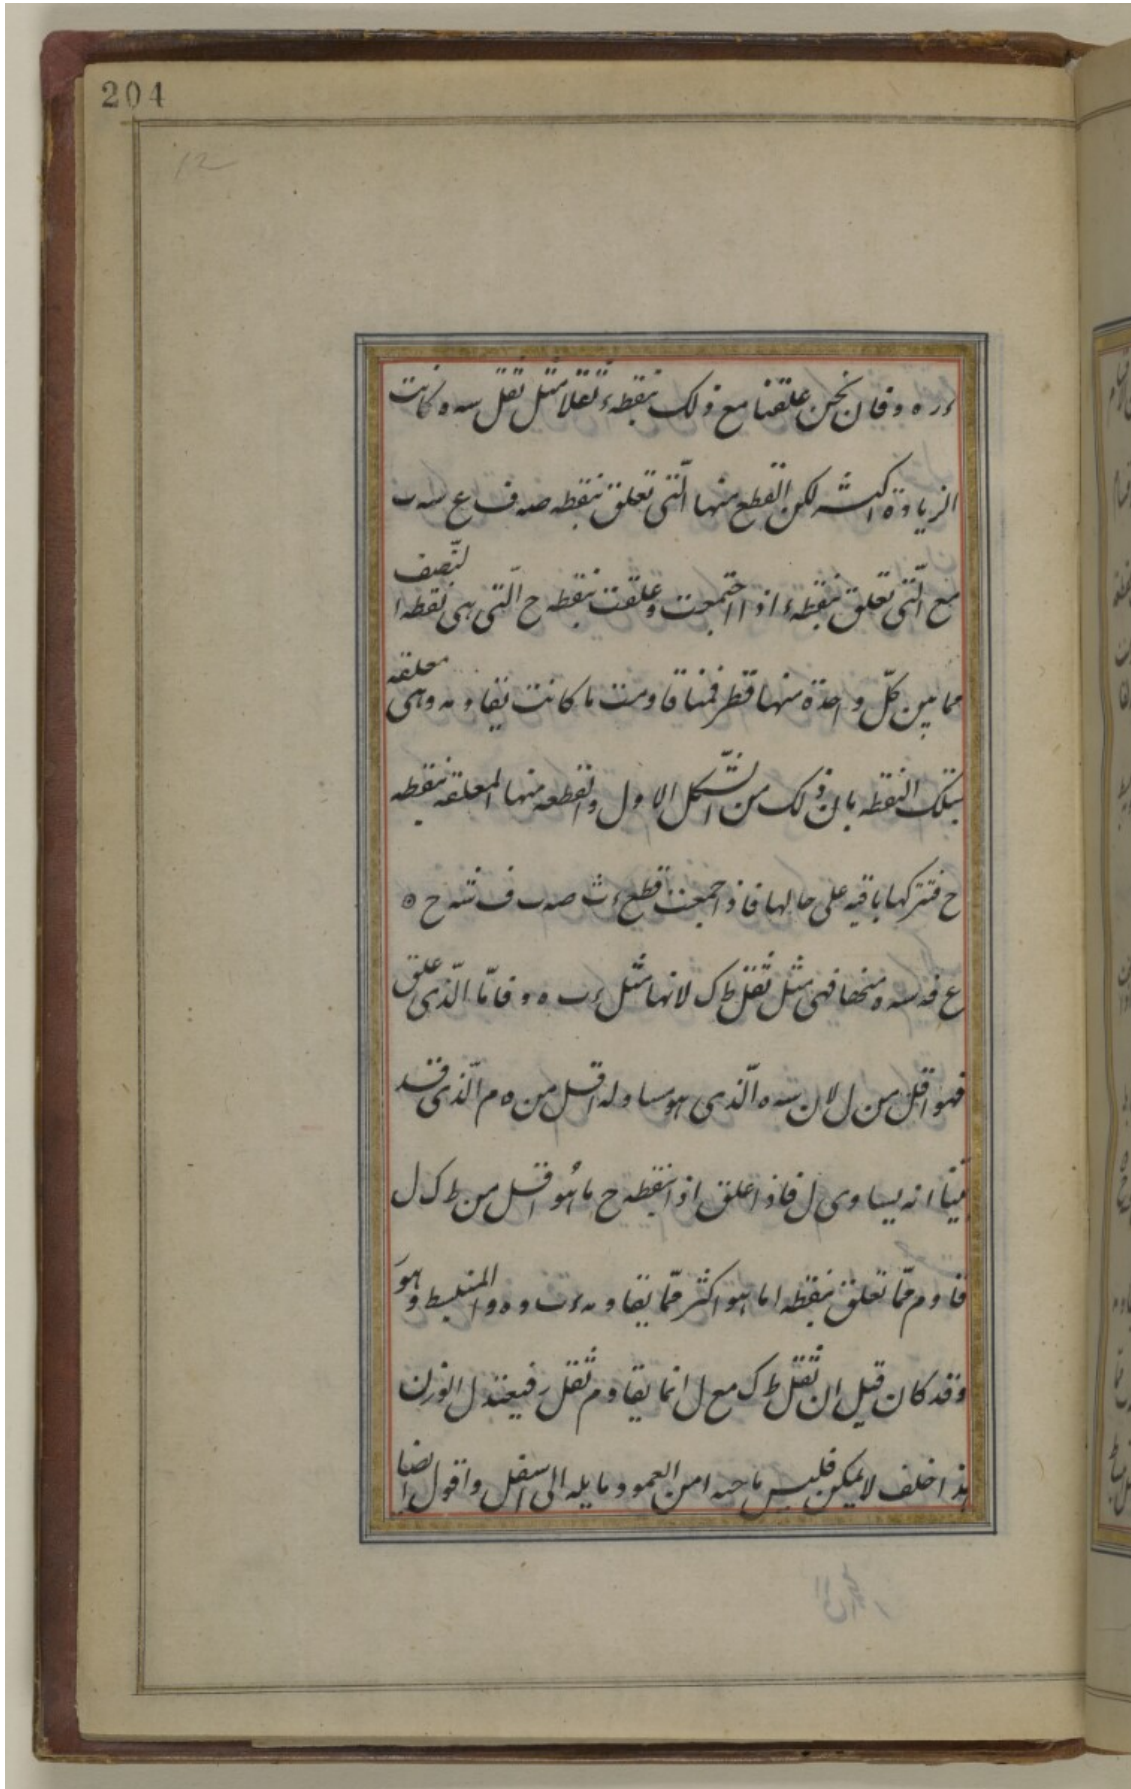 204
12
ء ر ه و فان نحن علقنا مع ذلك بنقطه ء ثقلا مثل ثقل سه ه كانت
الزيادة اكثر لكن القطع منها الّتى تعلق بنقطه صه ف ع سه ت
مع الّتى تعلق بنقطه ء اذا اجتمعت وعلقت بنقطه ح الّتى هى نقطه النّصف
مما بين كلّ واحدة منها قطر فمنا قاومت ما كانت تقاومه وهى معلقه
بتلك النقطه بان ذلك من الشّكل الاول والقطعه منها المعلقه بنقطه
ح فتتركها باقيه على حالها فاذ اجمعت قطع ء ث صه ب ف شه ح ه
ع فه سه ه منحفا فهى مثل ثقل ط ك لانها مثل ء ب ه و فامّا الّذى علق
فهو اقل من ل لان سه ه الّذى هو مساو له اقل من ه م الّذى قد
بيّنا انه يساوى ل فاذا علق اذا بنقطه ح ما هو اقل من ط ك ل
قاوم ممّا تعلق بنقطه ا ما هو اكثر ممّا يقاومه ء ب و ه و المنبسط وهو
وقد كان قيل ان ثقل ط ك مع ل انما يقاوم ثقل ر فيعتدل الوزن
هذا خلف لا يمكن فليس ناحيه ا من العمود مايله الى اسفل واقول ايضا